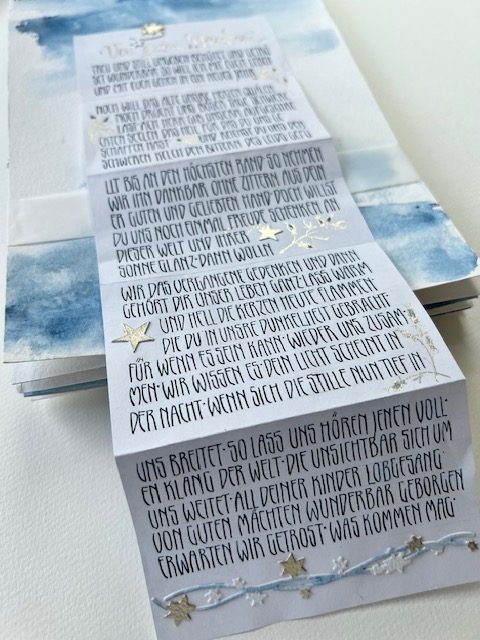 TREU UND STILL UMGEBEN BEHÜTET UND
WUNDERBAR SO WILL ICH MIT EUCH LEBEN
UND MIT EUCH GEHEN IN EIN NEUES JAHR
NOCH WILL DAS ALTE UNSRE HERZEN QUÄLEN
NOCH DRÜCKT UNS BÖSER TAGE SCHWERE
LAST ACH HERR GIB UNSERN AUFGESCHRECK
SEELEN DAS HEIL DAS DU UNS GE
SCHAFFEN HAST UND REICHST DU UNS DEN
SCHWEREN KELCH DEN BITTERN DES LEIDS GEFÜ
LLT BIS AN DEN HÖCHSTEN RAND SO NEHMEN
WIR IHN DANKBAR OHNE ZITTERN AUS DEIN
ER GUTEN UND GELIEBTEN HAND DOCH WILLST
DU UNS NOCH EINMAL FREUDE SCHENKEN AN
DIESER WELT UND IHRER
SONNE GLANZ·DANN WOLLN
WIR DAS VERGANGENE GEDENKEN UND DANN
GEHÖRT DIR UNSER LEBEN GANZ·LASS WARM
UND HELL DIE KERZEN HEUTE FLAMMEN
DIE DU IN UNSRE DUNKELHEIT GEBRACHT
FÜR WENN ES SEIN KANN·WIEDER UNS ZUSAM·
MEN·WIR WISSEN ES·DEIN LICHT SCHEINT IN
DER NACHT·WENN SICH DIE STILLE NUN TIEF IN
UNS BREITET·SO LASS UNS HÖREN JENEN VOLL·
EN KLANG DER WELT·DIE UNSICHTBAR SICH UM
UNS WEITET·ALL DEINER KINDER LOBGESANG·
VON GUTEN MÄCHTEN WUNDERBAR GEBORGEN
ERWARTEN WIR GETROST·WAS KOMMEN MAG·